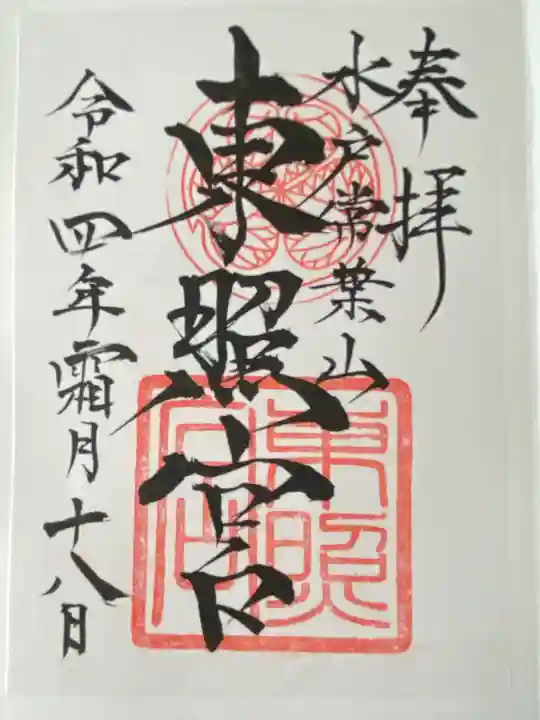 奉拝
水戸常葉山
東照宮
令和四年霜月十八日
東照宮